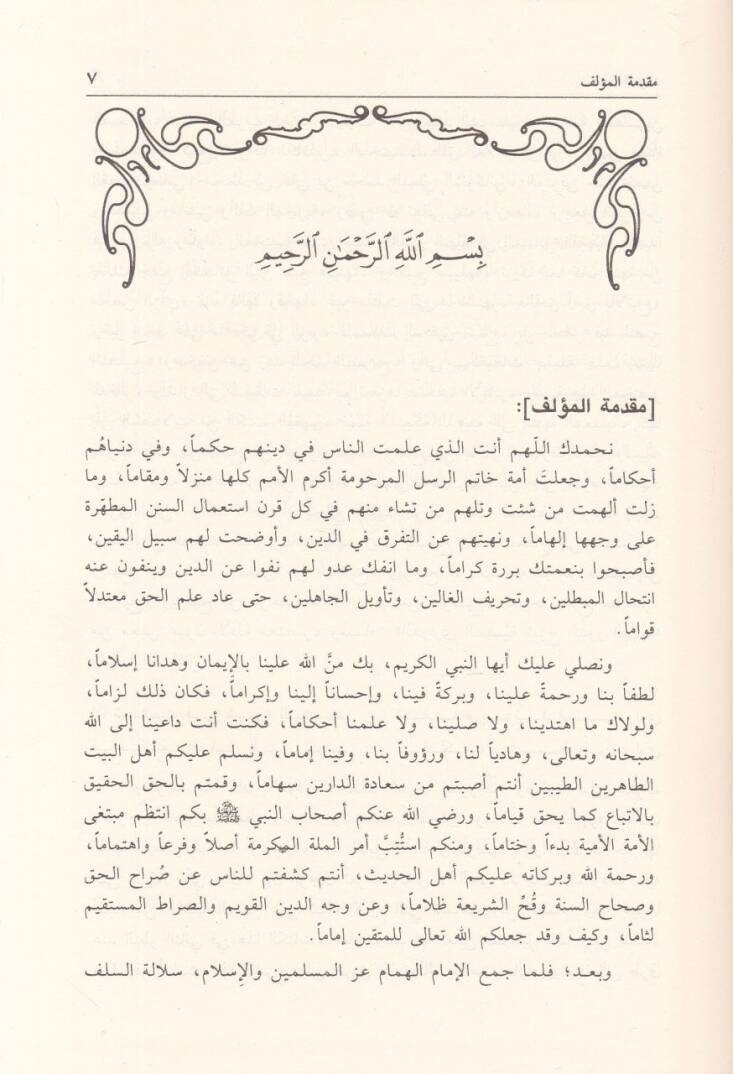 مقدمة المؤلف ٧
بِسْمِ ٱللَّهِ ٱلرَّحْمَٰنِ ٱلرَّحِيمِ
[مقدمة المؤلف]:
نحمدك اللّهم أنت الذي علمت الناس في دينهم حكماً، وفي دنياهُم
أحكاماً، وجعلتَ أمة خاتم الرسل المرحومة أكرم الأمم كلها منزلاً ومقاماً، وما
زلت ألهمت من شئت وتلهم من تشاء منهم في كل قرن استعمال السنن المطهّرة
على وجهها إلهاماً، ونهيتهم عن التفرق في الدين، وأوضحت لهم سبيل اليقين،
فأصبحوا بنعمتك بررة كراماً، وما انفك عدو لهم نفوا عن الدين وينفون عنه
انتحال المبطلين، وتحريف الغالين، وتأويل الجاهلين، حتى عاد علم الحق معتدلاً
قواماً.
ونصلي عليك أيها النبي الكريم، بك منَّ الله علينا بالإيمان وهدانا إسلاماً،
لطفاً بنا ورحمةً علينا، وبركةً فينا، وإحساناً إلينا وإكراماً، فكان ذلك لزاماً،
ولولاك ما اهتدينا، ولا صلينا، ولا علمنا أحكاماً، فكنت أنت داعينا إلى الله
سبحانه وتعالى، وهادياً لنا، ورؤوفاً بنا، وفينا إماماً، ونسلم عليكم أهل البيت
الطاهرين الطيبين أنتم أصبتم من سعادة الدارين سهاماً، وقمتم بالحق الحقيق
بالاتباع كما يحق قياماً، ورضي الله عنكم أصحاب النبي ﷺ بكم انتظم مبتغى
الأمة الأمية بدءاً وختاماً، ومنكم استُتِبَّ أمر الملة المكرمة أصلاً وفرعاً واهتماماً،
ورحمة الله وبركاته عليكم أهل الحديث، أنتم كشفتم للناس عن صُراح الحق
وصحاح السنة وقُحِّ الشريعة ظلاماً، وعن وجه الدين القويم والصراط المستقيم
لثاماً، وكيف وقد جعلكم الله تعالى للمتقين إماماً.
وبعد؛ فلما جمع الإمام الهمام عز المسلمين والإسلام، سلالة السلف